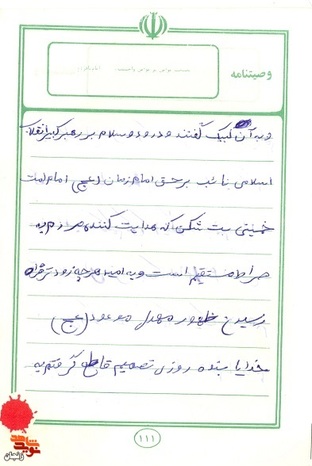 وصیتنامه
و به آن لبیک گفتند و درود و سلام بر رهبر کبیر انقلاب
اسلامی نائب بر حق امام زمان (عج) امام امت
خمینی بت شکن که هدایت کننده مردم به
صراط مستقیم است و به امید هر چه زودتر فرا
رسیدن ظهور مهدی موعود (عج)
خدایا بنده روزی تصمیم قاطع گرفتم به
۱۱۱
نوید شاهد
زنجان